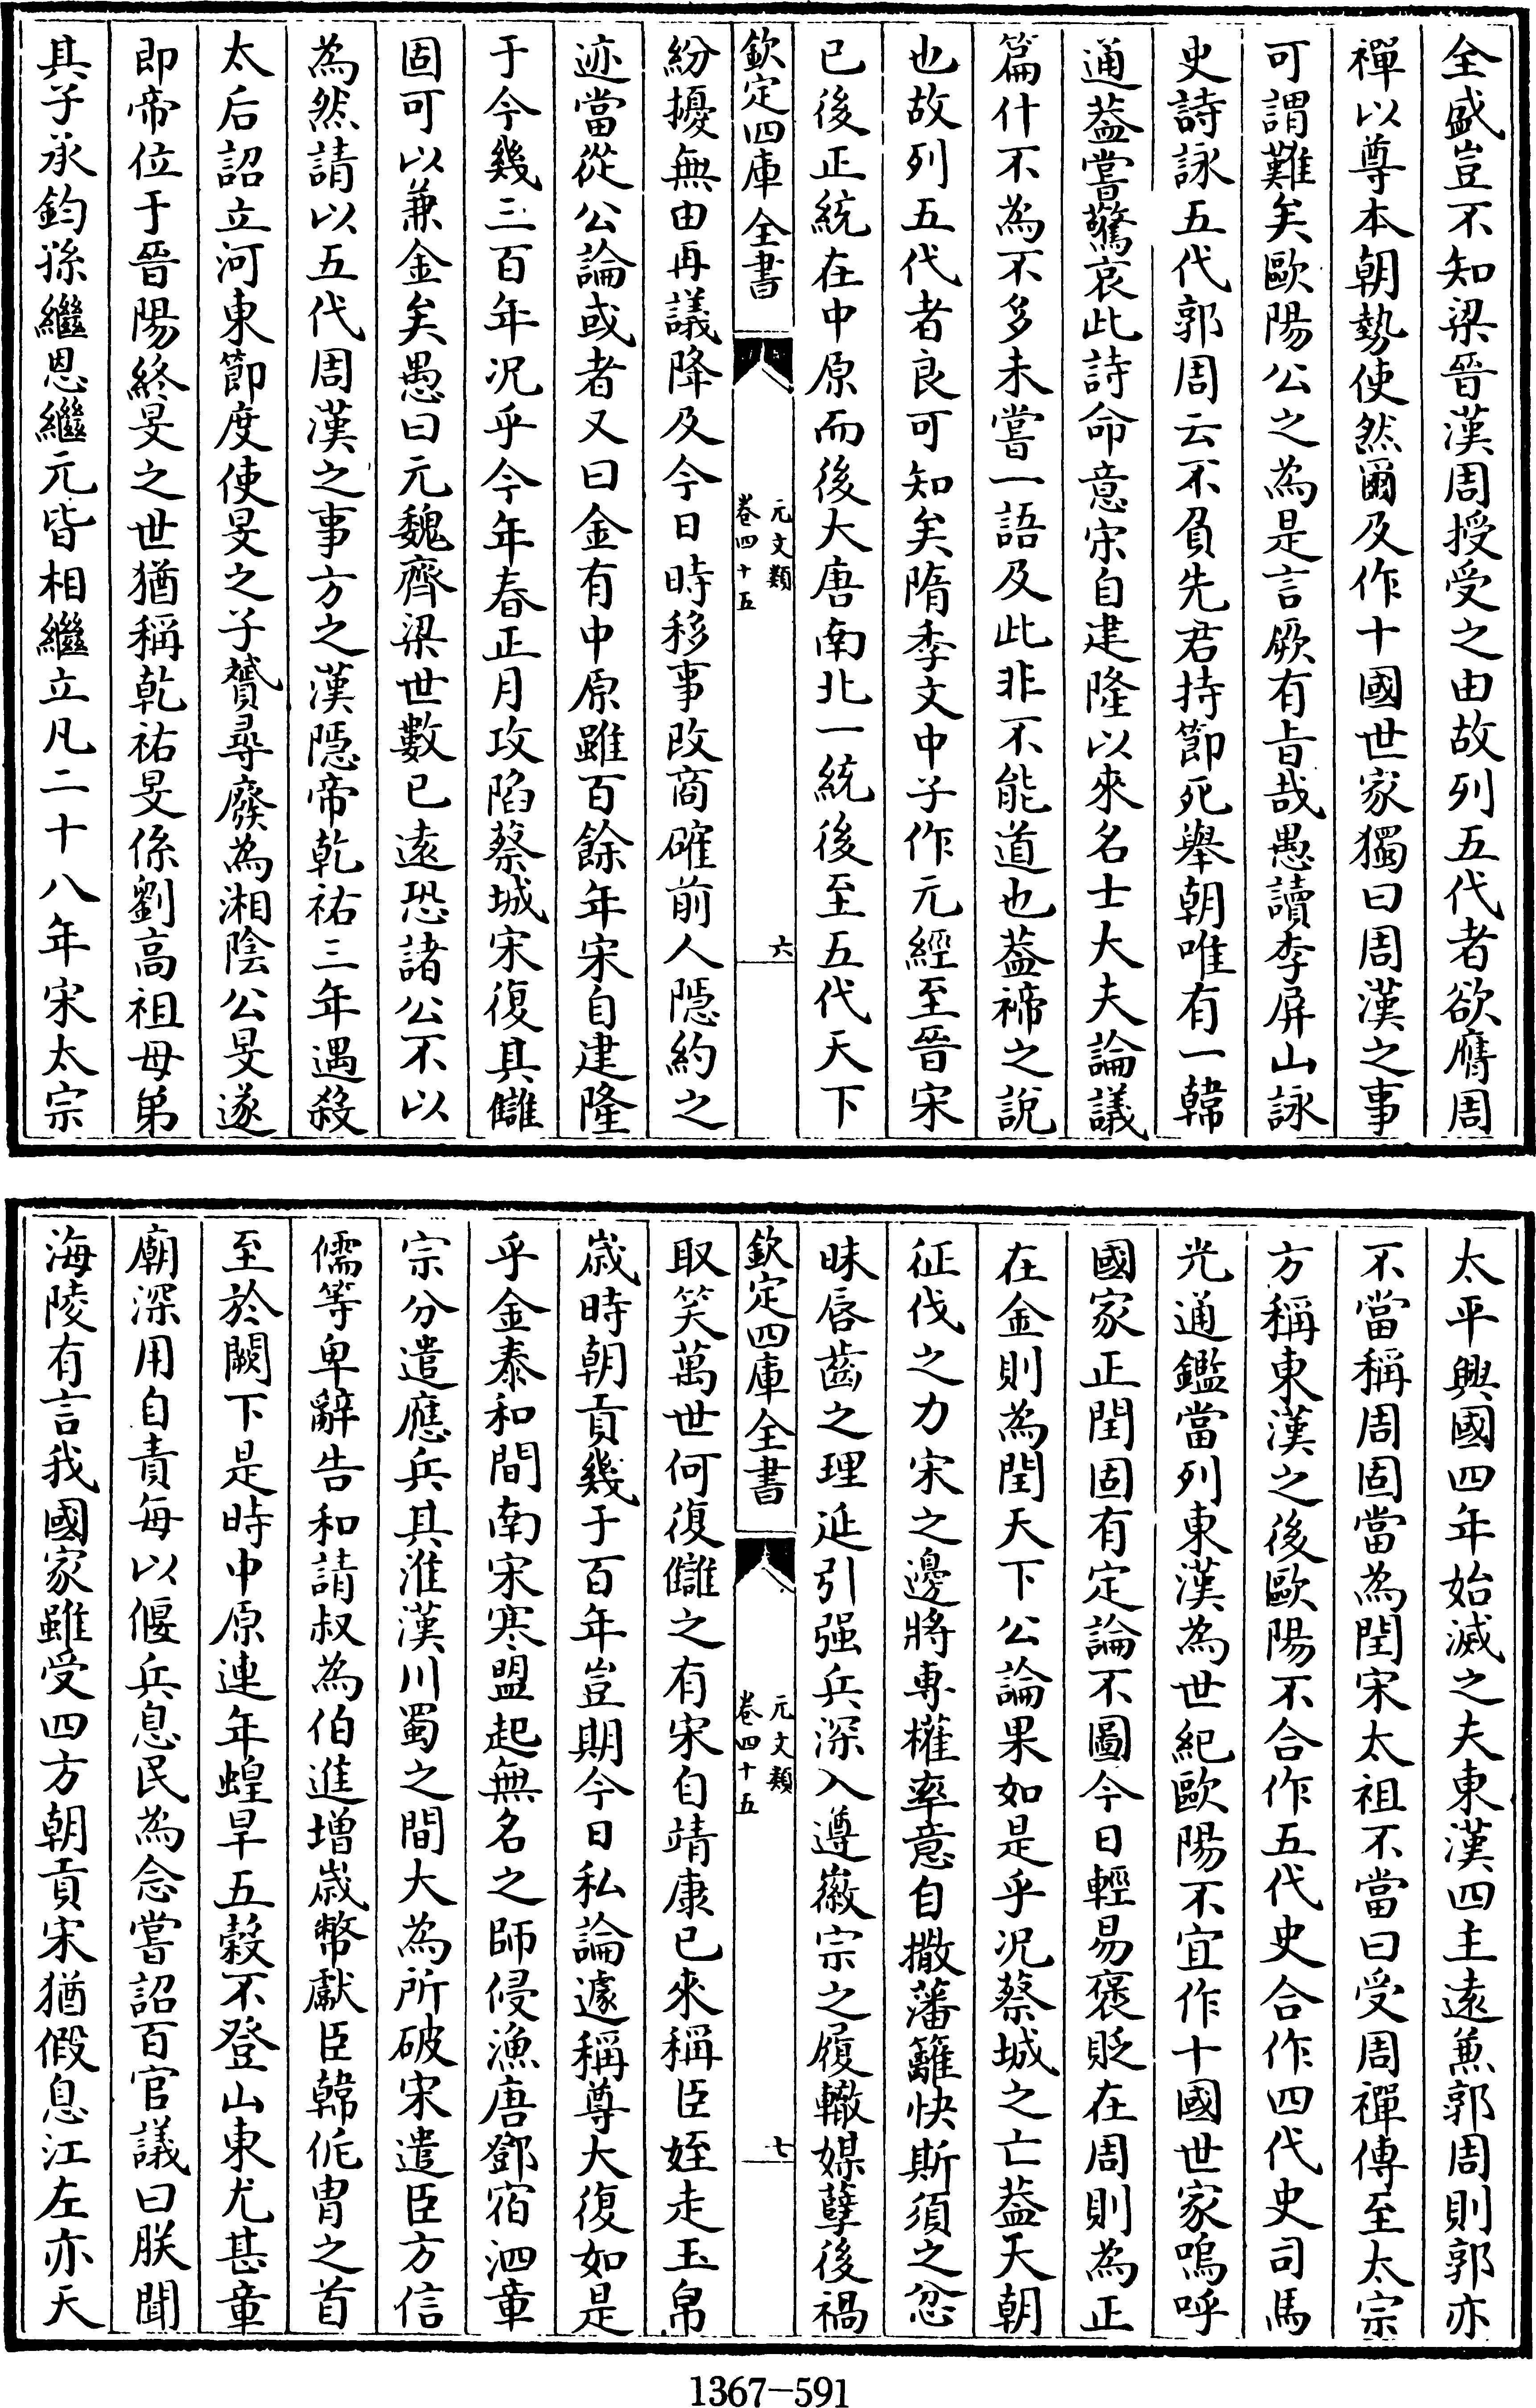 全盛豈不知梁晉漢周授受之由故列五代者欲膺周
禪以尊本朝勢使然爾及作十國世家獨曰周漢之事
可謂難矣歐陽公之為是言厥有㫖哉愚讀李屏山詠
史詩詠五代郭周云不負先君持節死舉朝唯有一韓
通葢嘗驚哀此詩命意宋自建隆以來名士大夫論議
篇什不為不多未嘗一語及此非不能道也葢禘之說
也故列五代者良可知矣隋季文中子作元經至晉宋
已後正統在中原而後大唐南北一統後至五代天下
欽定四庫全書
元文類
卷四十五
六
紛擾無由再議降及今日時移事改商確前人隱約之
迹當從公論或者又曰金有中原雖百餘年宋自建隆
于今幾三百年况乎今年春正月攻陷蔡城宋復其讎
固可以兼金矣愚曰元魏齊梁世數已遠恐諸公不以
為然請以五代周漢之事方之漢隱帝乾祐三年遇殺
太后詔立河東節度使旻之子贇尋廢為湘陰公旻遂
即帝位于晉陽終旻之世猶稱乾祐旻係劉高祖母弟
其子承鈞孫繼恩繼元皆相繼立凡二十八年宋太宗
太平興國四年始滅之夫東漢四主遠兼郭周則郭亦
不當稱周固當為閏宋太祖不當曰受周禪傳至太宗
方稱東漢之後歐陽不合作五代史合作四代史司馬
光通鑑當列東漢為世紀歐陽不宜作十國世家嗚呼
國家正閏固有定論不圖今日輕易褒貶在周則為正
在金則為閏天下公論果如是乎况蔡城之亡葢天朝
征伐之力宋之邊將專權率意自撤藩籬快斯須之忿
昧唇齒之理延引强兵深入遵徽宗之履轍媒孽後禍
欽定四庫全書
元文類
卷四十五
七
取笑萬世何復讎之有宋自靖康已來稱臣姪走玉帛
歲時朝貢幾于百年豈期今日私論遽稱尊大復如是
乎金泰和間南宋寒盟起無名之師侵漁唐鄧宿泗章
宗分遣應兵其淮漢川蜀之間大為所破宋遣臣方信
儒等卑辭告和請叔為伯進增歲幣獻臣韓侂冑之首
至於闕下是時中原連年蝗旱五穀不登山東尤甚章
廟深用自責每以偃兵息民為念嘗詔百官議曰朕聞
海陵有言我國家雖受四方朝貢宋猶假息江左亦天
1367—591